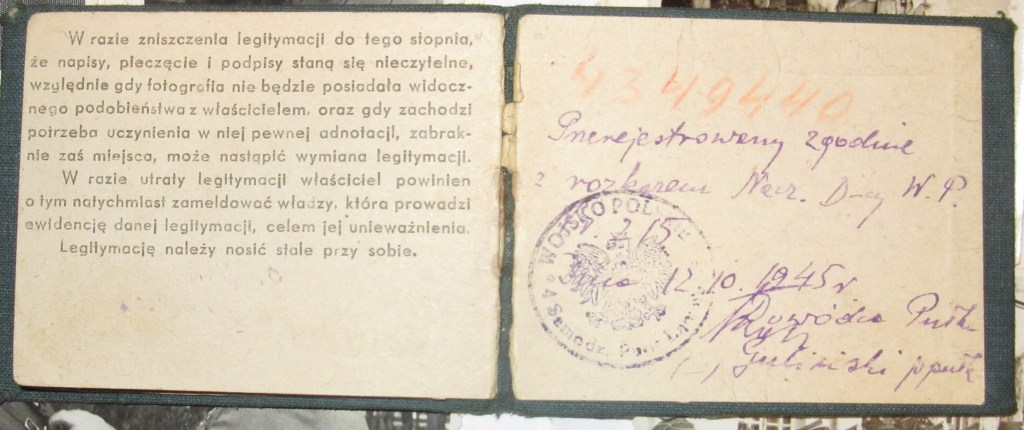 W razie zniszczenia legitymacji do tego stopnia,
że napisy, pieczęcie i podpisy staną się nieczytelne,
względnie gdy fotografia nie będzie posiadała widocz-
nego podobieństwa z właścicielem, oraz gdy zachodzi
potrzeba uczynienia w niej pewnej adnotacji, zabrak-
nie zaś miejsca, może nastąpić wymiana legitymacji.
W razie utraty legitymacji właściciel powinien
o tym natychmiast zameldować władzy, która prowadzi
ewidencję danej legitymacji, celem jej unieważnienia.
Legitymację należy nosić stale przy sobie.
4349440
Przerejestrowany zgodnie
z rozkazem Nacz. D-cy W. P.
215
Dnia 12.10.1945 r
Dowódca Pułku
(-) Guliński ppułk
WOJSKO POLSKIE * 4 Samo